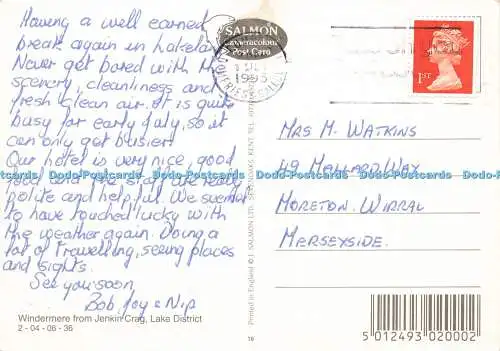 Having a well earned
break again in Lakeland
Never get bored with the
scenery, cleanliness and
fresh clean air. It is quite
busy for early July, so it
can only get busier.
Our hotel is very nice, good
food and the staff are really
polite and helpful. We seemed
to have touched lucky with
the weather again. Doing a
lot of travelling, seeing places
and sights.
See you soon,
Bob, Joy & Nip
Windermere from Jenkin Crag, Lake District
2 - 04 - 06 - 36
SALMON
Cameracolour
Post Card
1ST
Mrs M. Watkins
49 Mallard Way
Moreton. Wirral
Merseyside.
Printed in England © J. SALMON LTD. SEVENOAKS KENT TEL.
16
5 012493 020002
Dodo-Postcards Dodo-Postcards Dodo-Postcards Dodo-Postcards Dodo-Postcards